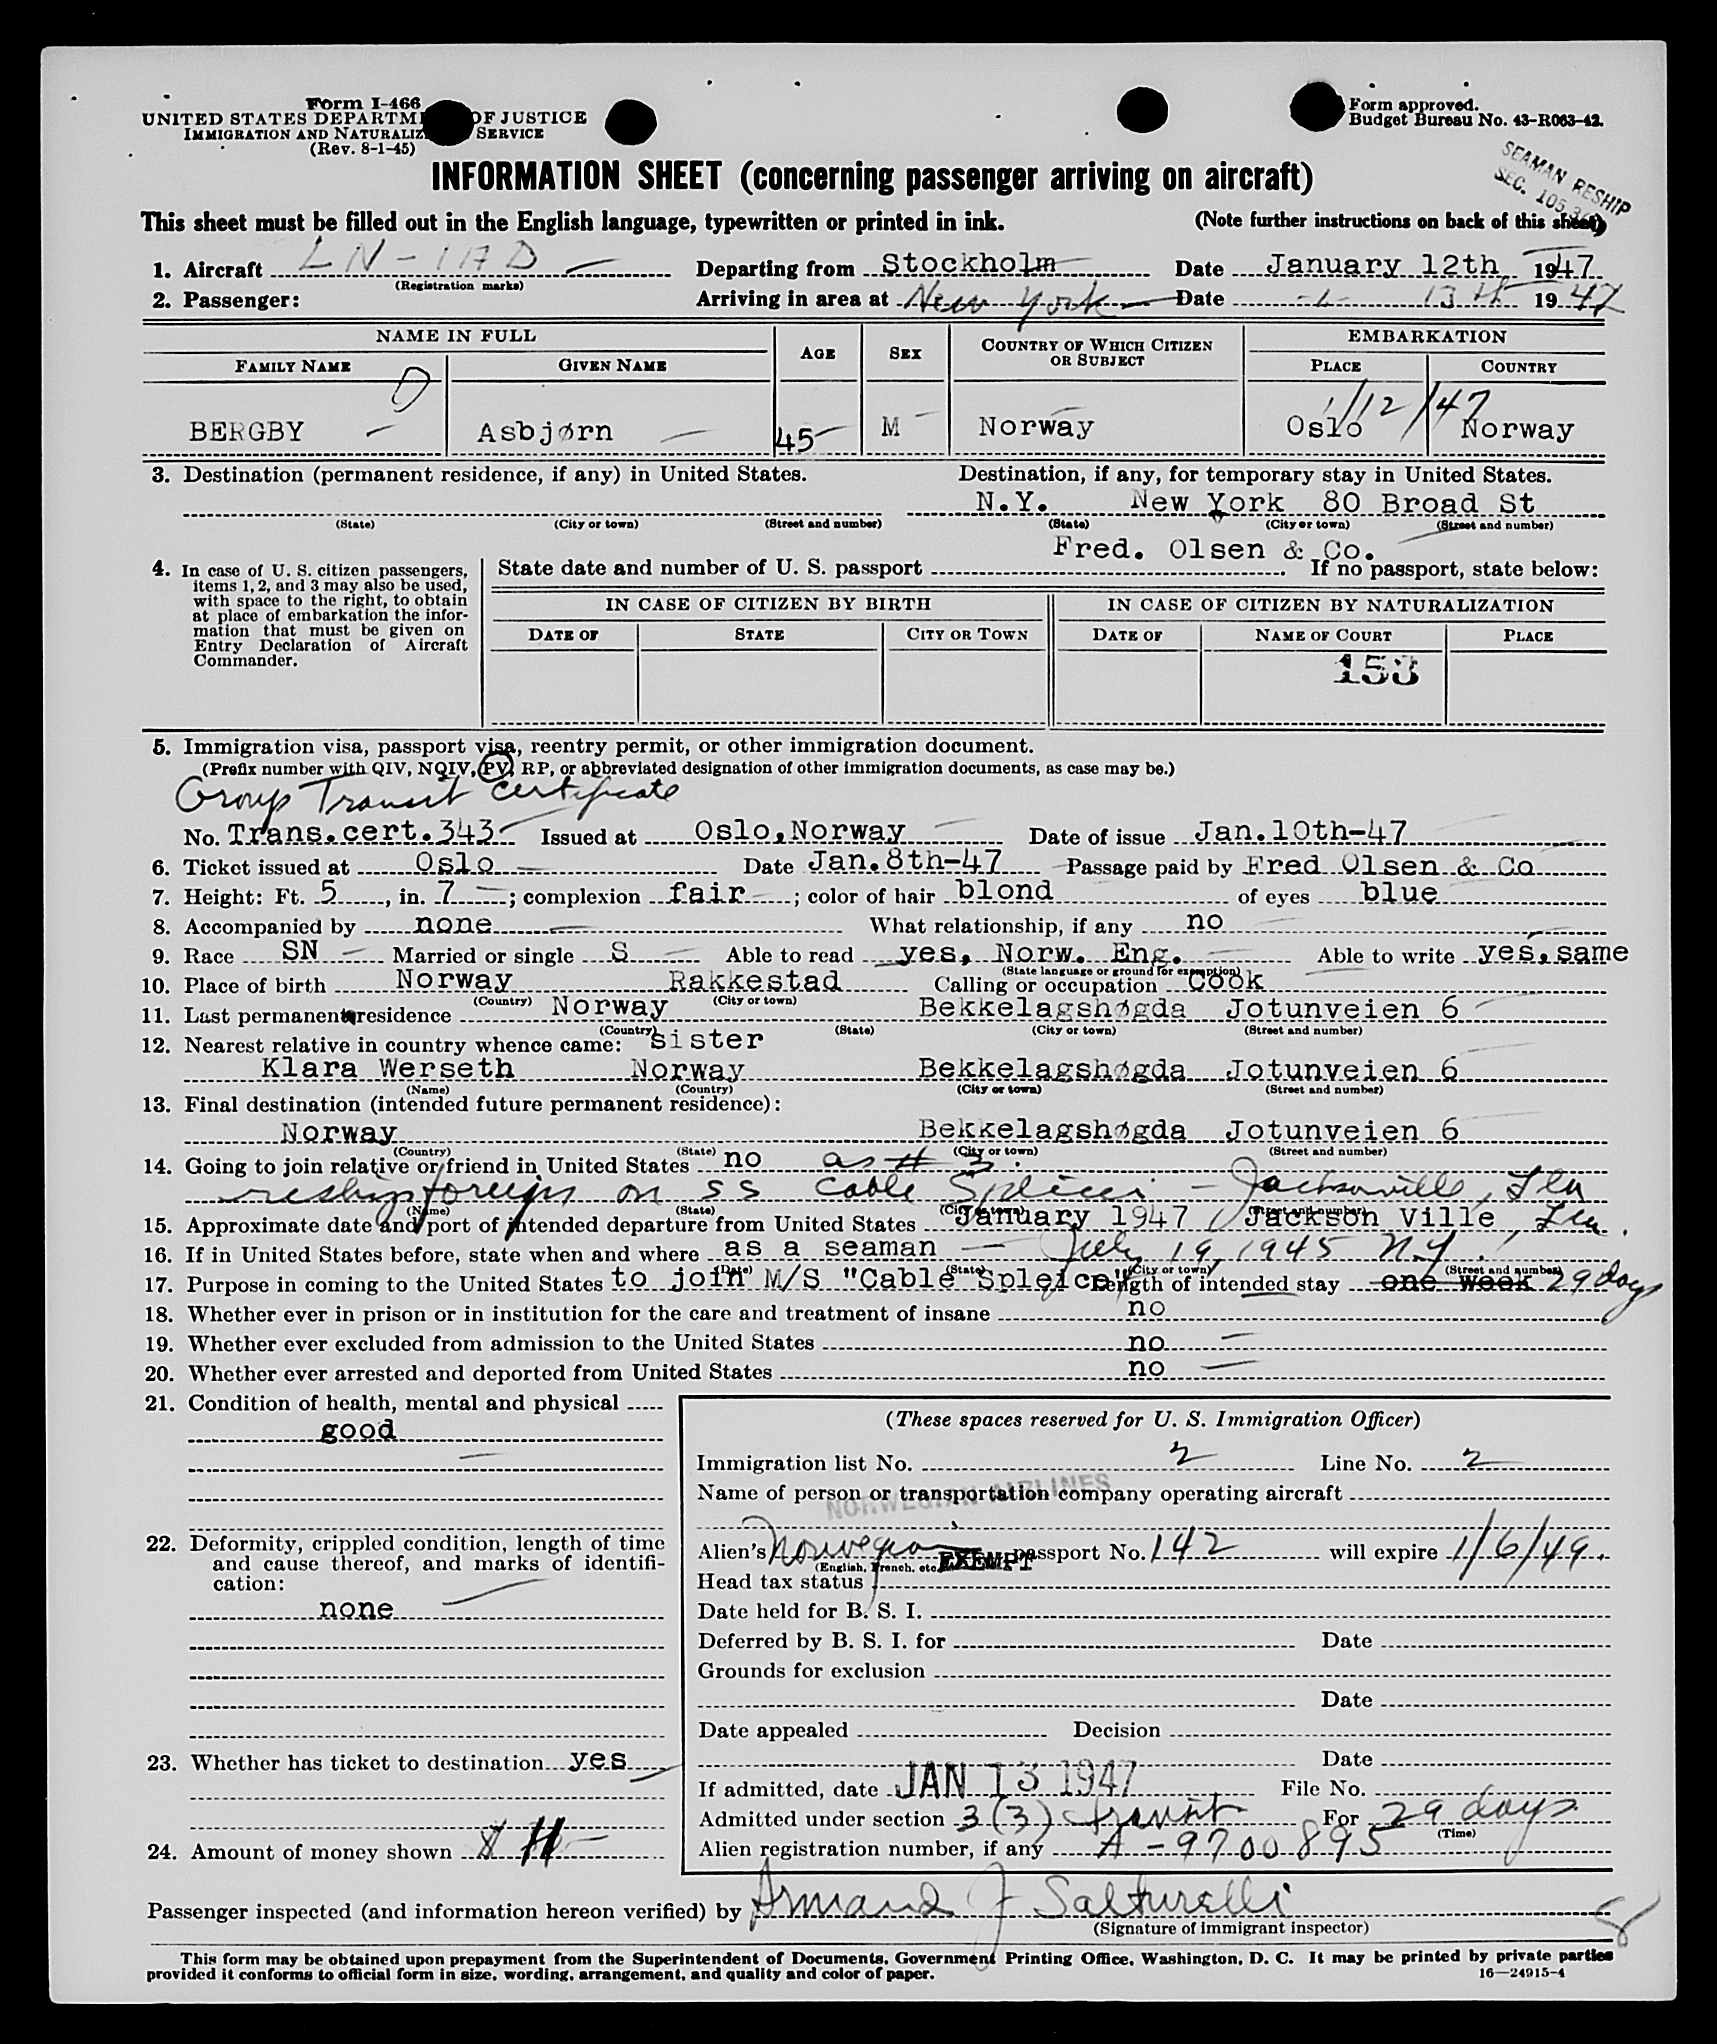 Form I-466
UNITED STATES DEPARTM OF JUSTICE
IMMIGRATION AND NATURALIZ SERVICE
(Rev. 8-1-45)
Form approved.
Budget Bureau No. 43-R063-42.
SEAMAN RESHIP
SEC. 105.3
INFORMATION SHEET (concerning passenger arriving on aircraft)
This sheet must be filled out in the English language, typewritten or printed in ink. (Note further instructions on back of this sheet)
1. Aircraft LN-IAD Departing from Stockholm Date January 12th 1947
(Registration marks)
2. Passenger: Arriving in area at New York Date -1- 13th 1947
NAME IN FULL AGE SEX COUNTRY OF WHICH CITIZEN OR SUBJECT EMBARKATION
FAMILY NAME GIVEN NAME PLACE COUNTRY
1/12/47
BERGBY Asbjørn 45 M Norway Oslo Norway
3. Destination (permanent residence, if any) in United States. Destination, if any, for temporary stay in United States.
N.Y. New York 80 Broad St
(State) (City or town) (Street and number) (State) (City or town) (Street and number)
Fred. Olsen & Co.
4. In case of U. S. citizen passengers, items 1, 2, and 3 may also be used, with space to the right, to obtain at place of embarkation the information that must be given on Entry Declaration of Aircraft Commander.
State date and number of U. S. passport . If no passport, state below:
IN CASE OF CITIZEN BY BIRTH IN CASE OF CITIZEN BY NATURALIZATION
DATE OF STATE CITY OR TOWN DATE OF NAME OF COURT PLACE
153
5. Immigration visa, passport visa, reentry permit, or other immigration document.
(Prefix number with QIV, NQIV, PV, RP, or abbreviated designation of other immigration documents, as case may be.)
Group Transit Certificate
No. Trans.cert.343 Issued at Oslo,Norway Date of issue Jan.10th-47
6. Ticket issued at Oslo Date Jan.8th-47 Passage paid by Fred Olsen & Co
7. Height: Ft. 5, in. 7; complexion fair; color of hair blond of eyes blue
8. Accompanied by none What relationship, if any no
9. Race SN Married or single S Able to read yes, Norw. Eng. Able to write yes, same
(State language or ground for exemption)
10. Place of birth Norway Rakkestad Calling or occupation Cook
(Country) (City or town)
11. Last permanent residence Norway Bekkelagshøgda Jotunveien 6
(Country) (State) (City or town) (Street and number)
12. Nearest relative in country whence came: sister
Klara Werseth Norway Bekkelagshøgda Jotunveien 6
(Name) (Country) (City or town) (Street and number)
13. Final destination (intended future permanent residence):
Norway Bekkelagshøgda Jotunveien 6
(Country) (State) (City or town) (Street and number)
14. Going to join relative or friend in United States no as # 3.
reship foreign on SS Cable Splicer - Jacksonville, Fla
(Name) (State) (City or town) (Street and number)
15. Approximate date and port of intended departure from United States January 1947 Jackson Ville, Fla.
16. If in United States before, state when and where as a seaman - July 19, 1945 N.Y.
(Date) (State) (City or town) (Street and number)
17. Purpose in coming to the United States to join M/S "Cable Spleice" Length of intended stay one week 29 days
18. Whether ever in prison or in institution for the care and treatment of insane no
19. Whether ever excluded from admission to the United States no
20. Whether ever arrested and deported from United States no
21. Condition of health, mental and physical
good
22. Deformity, crippled condition, length of time and cause thereof, and marks of identification:
none
23. Whether has ticket to destination yes
24. Amount of money shown $
(These spaces reserved for U. S. Immigration Officer)
Immigration list No. 2 Line No. 2
Name of person or transportation company operating aircraft
NORWEGIAN AIRLINES
Alien's Norwegian passport No. 142 will expire 1/6/49.
(English, French, etc.)
Head tax status EXEMPT
Date held for B. S. I.
Deferred by B. S. I. for Date
Grounds for exclusion
Date
Date appealed Decision
Date
If admitted, date JAN 13 1947 File No.
Admitted under section 3(3) transit For 29 days
(Time)
Alien registration number, if any A-9700895
Passenger inspected (and information hereon verified) by Armand J Salturelli
(Signature of immigrant inspector)
8
This form may be obtained upon prepayment from the Superintendent of Documents, Government Printing Office, Washington, D. C. It may be printed by private parties
provided it conforms to official form in size, wording, arrangement, and quality and color of paper.
16—24915-4